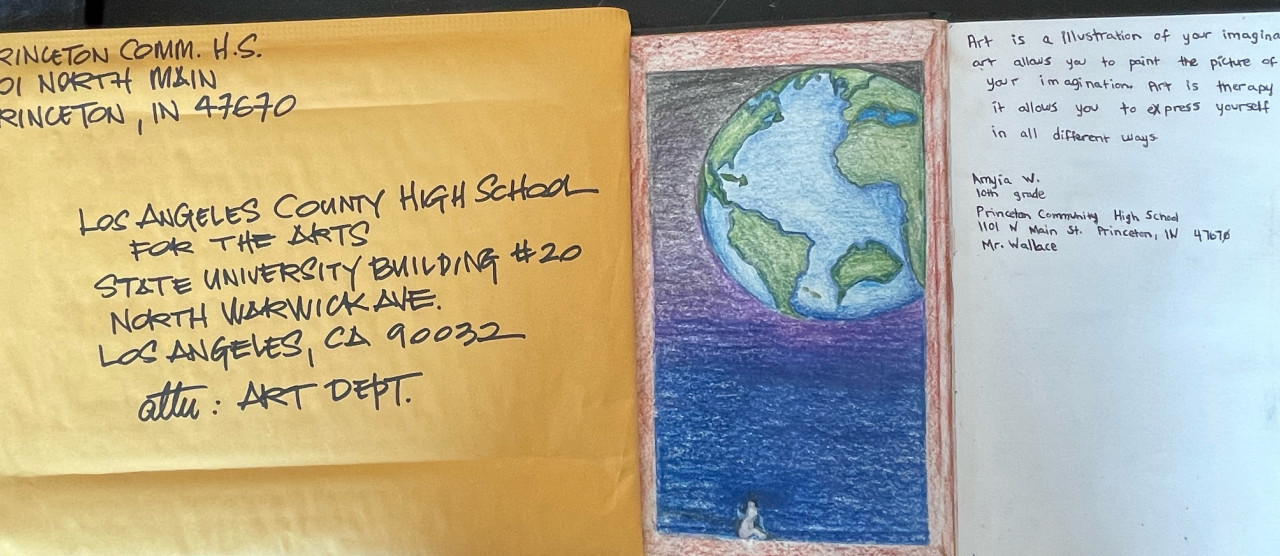 RINCETON COMM. H.S.
01 NORTH MAIN
RINCETON, IN 47670
LOS ANGELES COUNTY HIGH SCHOOL
FOR THE ARTS
STATE UNIVERSITY BUILDING #20
NORTH WARWICK AVE.
LOS ANGELES, CA 90032
attn: ART DEPT.
Art is a illustration of your imagina
art allows you to paint the picture of
your imagination. Art is therapy
it allows you to express yourself
in all different ways
Amyia W.
10th grade
Princeton Community High School
1101 N Main St. Princeton, IN 47670
Mr. Wallace